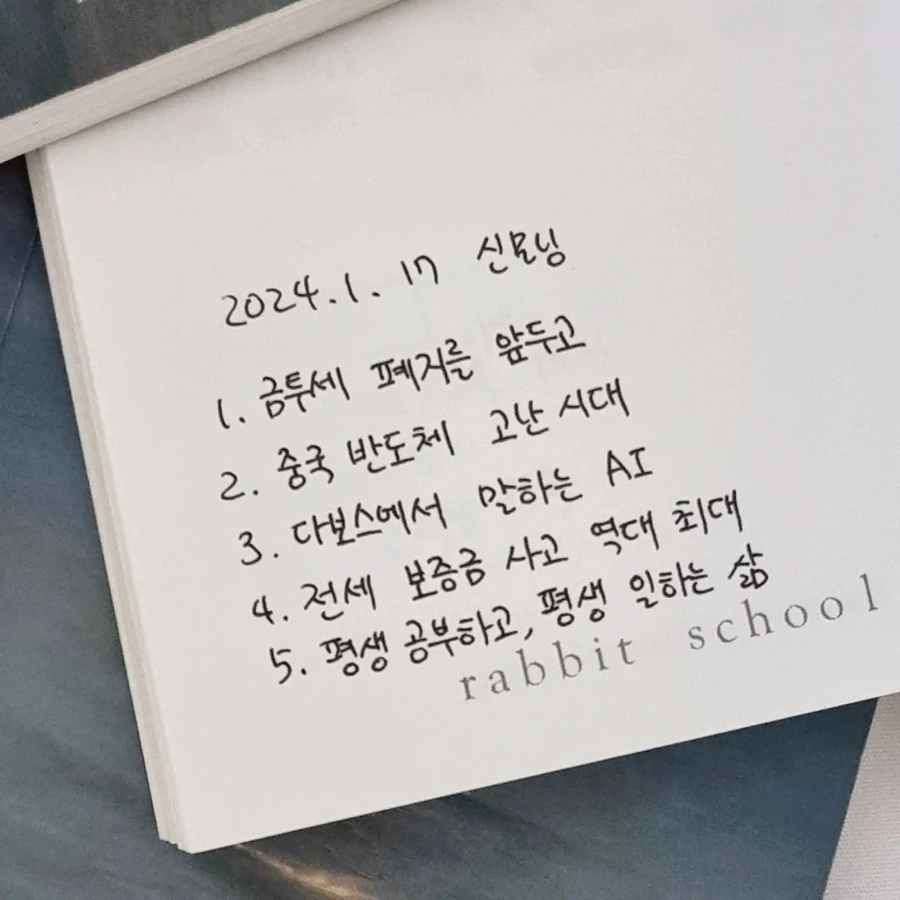 2024.1.17 신모닝
1. 금투세 폐지를 앞두고
2. 중국 반도체 고난 시대
3. 다보스에서 말하는 AI
4. 전세 보증금 사고 역대 최대
5. 평생 공부하고, 평생 일하는 삶
rabbit school